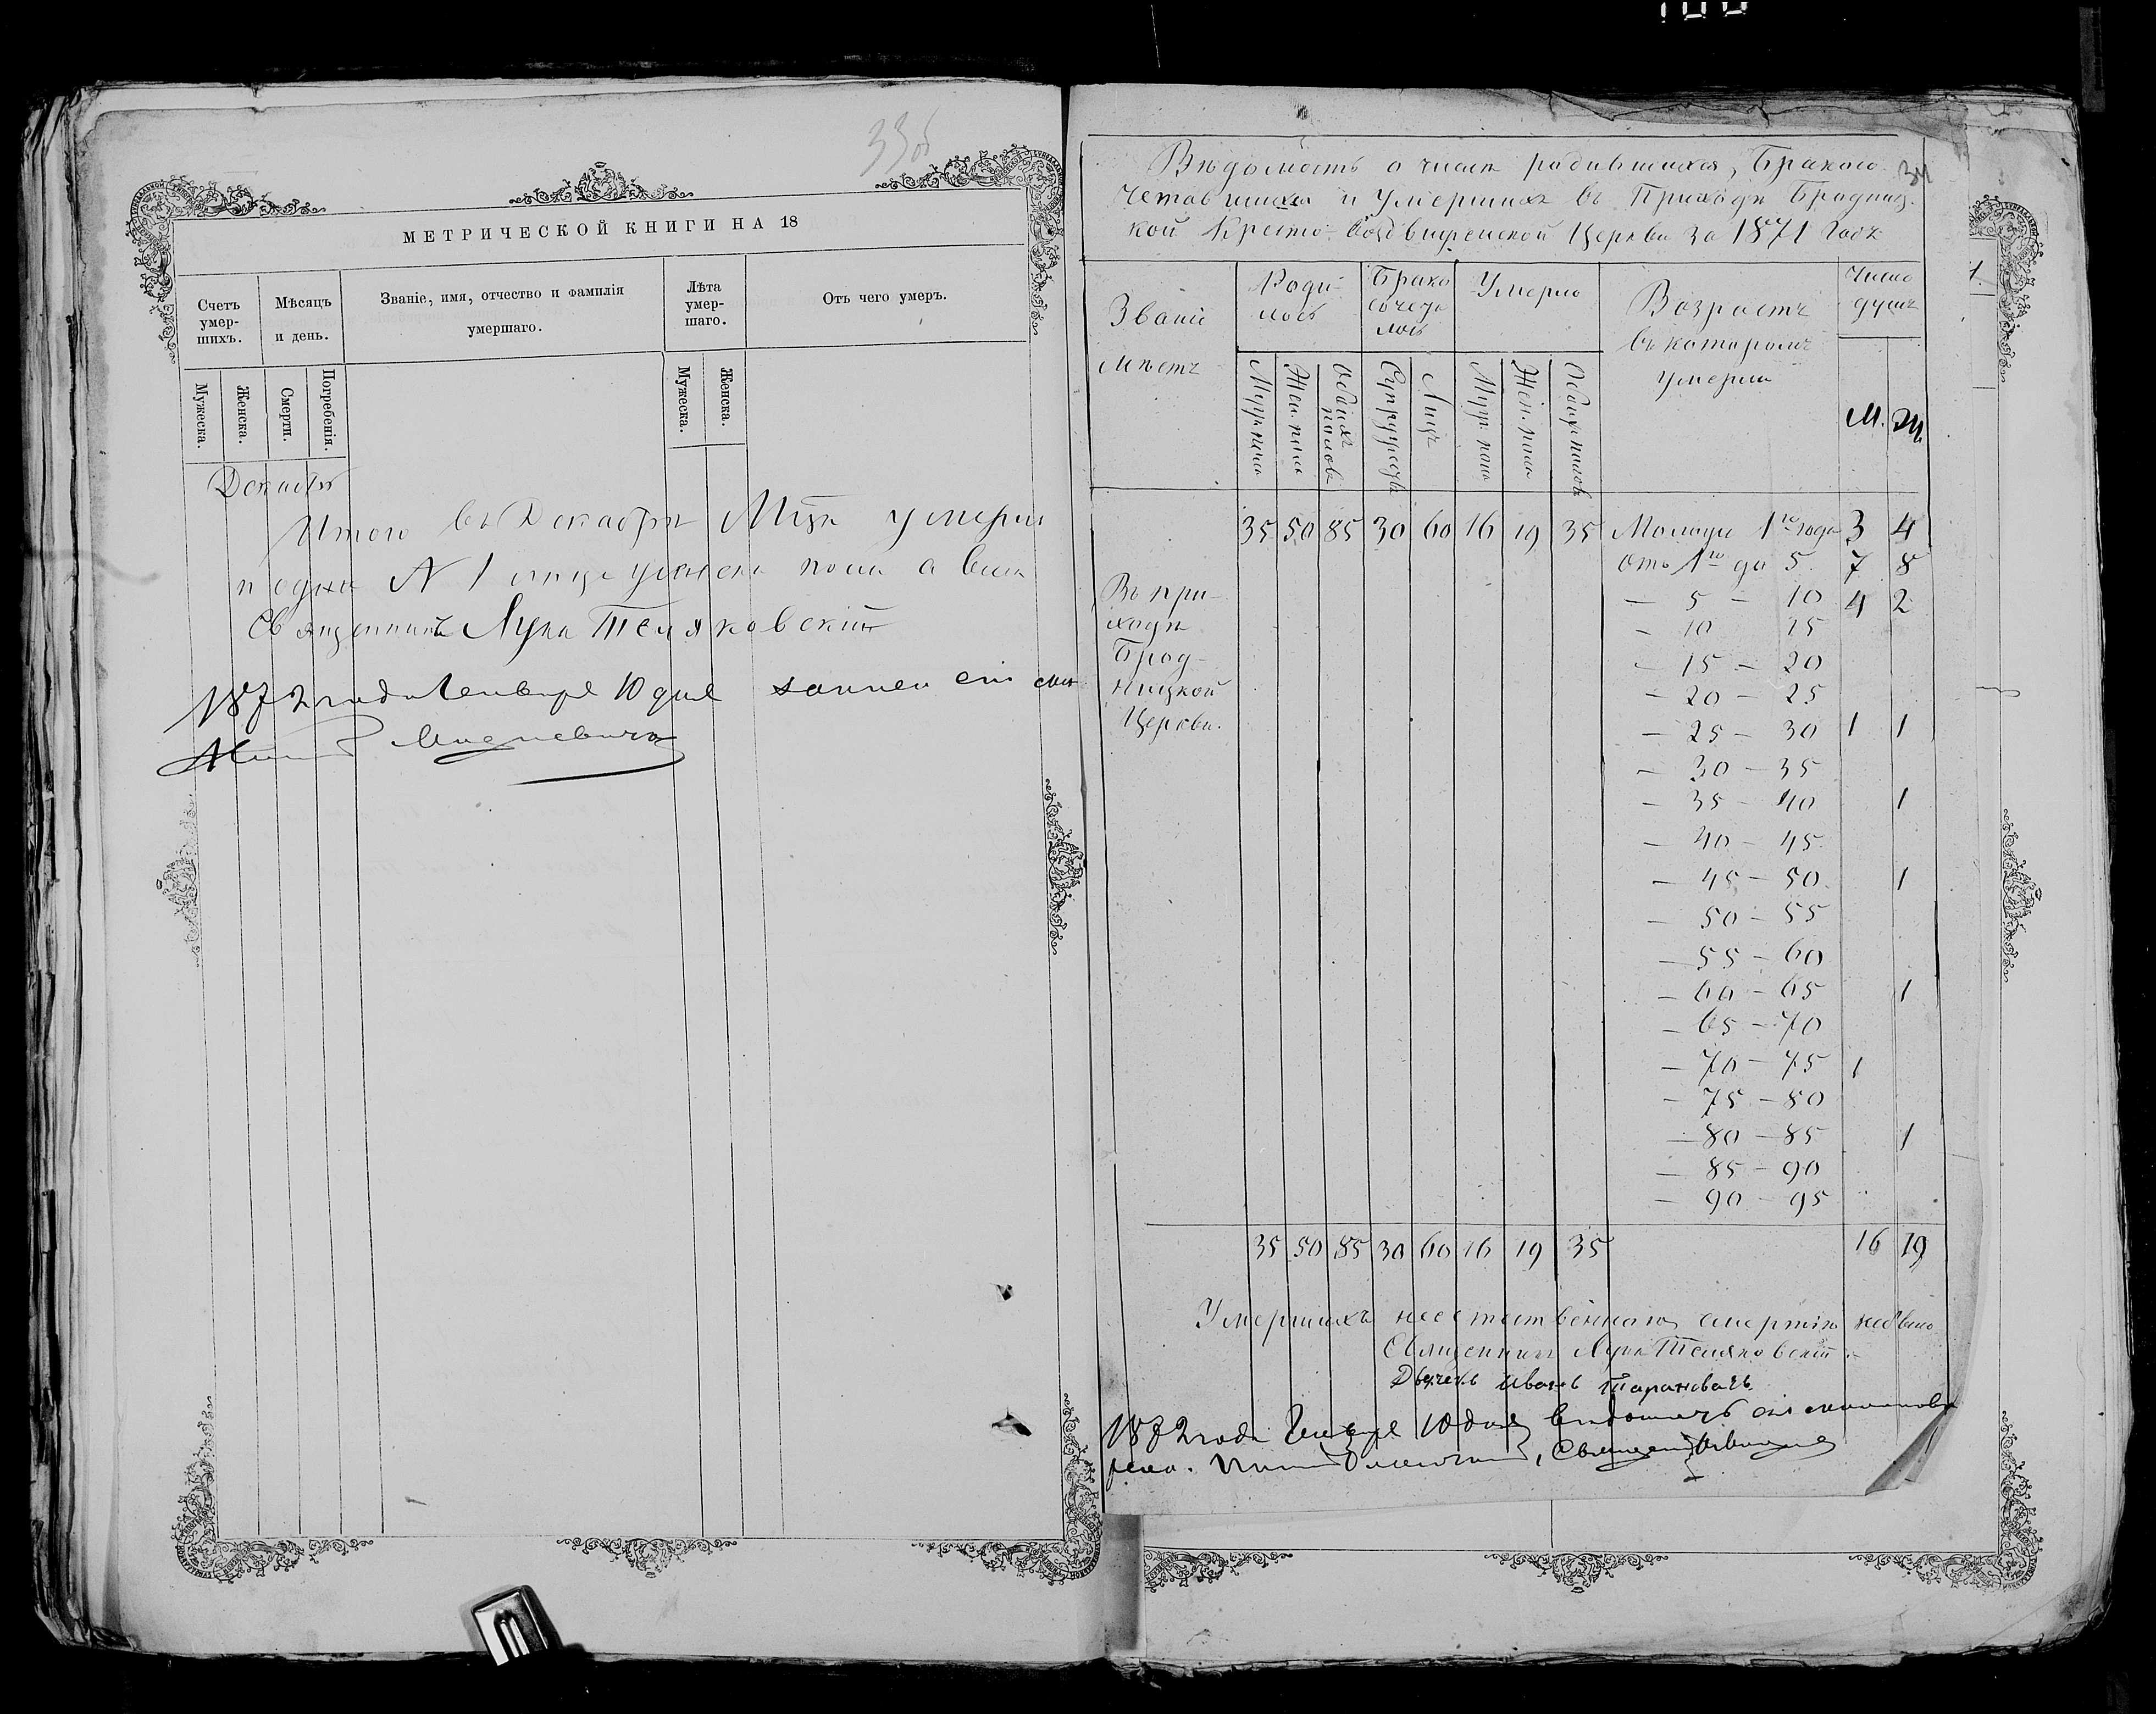 100
33об
МЕТРИЧЕСКОЙ КНИГИ НА 18
Счетъ умер- шихъ.
Мѣсяцъ и день.
Званіе, имя, отчество и фамилія умершаго.
Лѣта умер- шаго.
Отъ чего умеръ.
Мужеска. Женска. Смерти. Погребенія. Мужеска. Женска.
Декабрь
Итого въ Декабрѣ Мцѣ умерли
одна № 1 женска пола а всих
Священникъ Лука Теляковскій
1872 года Генваря 10 дня
34
Вѣдомость о числѣ родившихся, Бракосо-
четавшихся и умершихъ въ Приходѣ Бродниц-
кой Кресто-Воздвиженской Церкви за 1871 Годъ
Званіе мѣстъ
Роди- лось
Брако сочета лось
Умерло
Возрастъ въ которомъ умерли
Число душъ
Муж. пола Жен. пола Обоихъ половъ Супружествъ Лицъ Муж. пола Жен. пола Обоих половъ М. Ж.
35 50 85 30 60 16 19 35 Моложе 1го года 3 4
отъ 1го до 5. 7 8
Въ при- — 5 — 10 4 2
ходѣ — 10 15
Брод- — 15 — 20
ницкой — 20 — 25
Церкви. — 25 — 30 1 1
— 30 — 35
— 35 — 40 1
— 40 — 45
— 45 — 50 1
— 50 — 55
— 55 — 60
— 60 — 65 1
— 65 — 70
— 70 — 75 1
— 75 — 80
— 80 — 85 1
— 85 — 90
— 90 — 95
35 50 85 30 60 16 19 35 16 19
Умершихъ неестественною смертію небыло
Священникъ Лука Теляковскій
Дьячекъ Иванъ
1872 года Генваря 10 дня